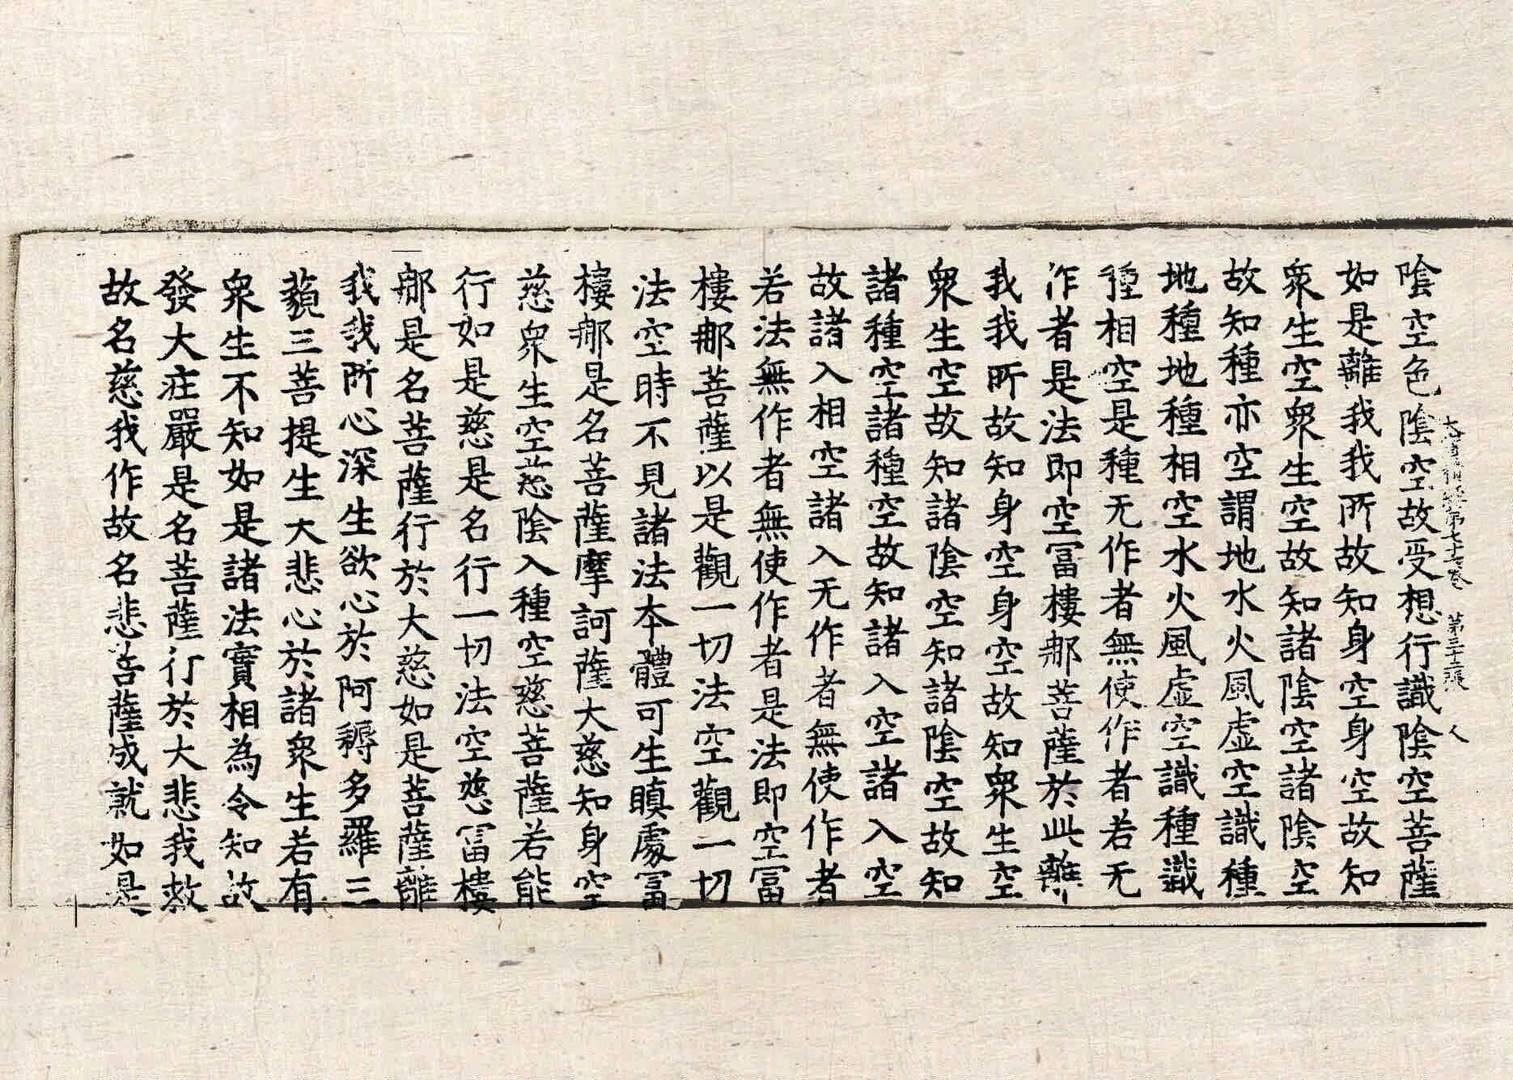 陰空色陰空故受想行識陰空菩薩
如是離我我所故知身空身空故知
衆生空衆生空故知諸陰空諸陰空
故知種亦空謂地水火風虛空識種
地種地種相空水火風虛空識種識
種相空是種无作者無使作者若无
作者是法即空冨樓那菩薩於此離
我我所故知身空身空故知衆生空
衆生空故知諸陰空知諸陰空故知
諸種空諸種空故知諸入空諸入空
故諸入相空諸入无作者無使作者
若法無作者無使作者是法即空冨
樓那菩薩以是觀一切法空觀一切
法空時不見諸法本體可生瞋處冨
樓那是名菩薩摩訶薩大慈知身空
慈衆生空慈陰入種空慈菩薩若能
行如是慈是名行一切法空慈冨樓
那是名菩薩行於大慈如是菩薩離
我我所心深生欲心於阿耨多羅三
藐三菩提生大悲心於諸衆生若有
衆生不知如是諸法實相為令知故
發大莊嚴是名菩薩行於大悲我救
故名慈我作故名悲菩薩成就如是